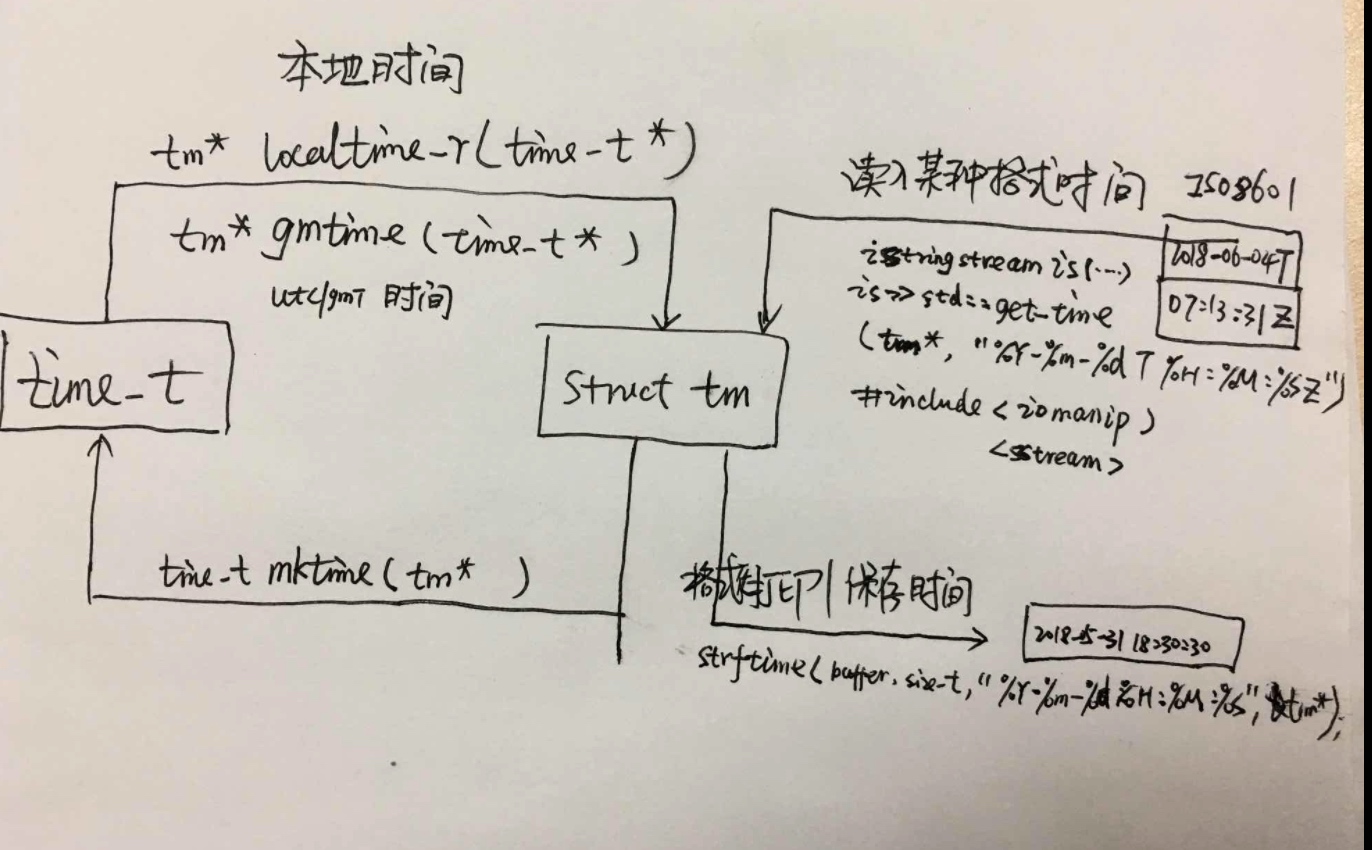 本地时间
tm* localtime-r(time-t*)
tm* gmtime(time-t*)
utc/gmT 时间
time-t
Struct tm
time-t mktime(tm* )
读入某种格式时间 ISO8601
2018-06-04T
07:13:31Z
istringstream is(...)
is>>std::get-time
(tm*, "%Y-%m-%dT%H:%M:%SZ")
#include<iomanip>
<sstream>
格式打印|保存时间
2018-05-31 18:30:30
strftime(buffer, size-t, "%Y-%m-%d %H:%M:%S", tm*);